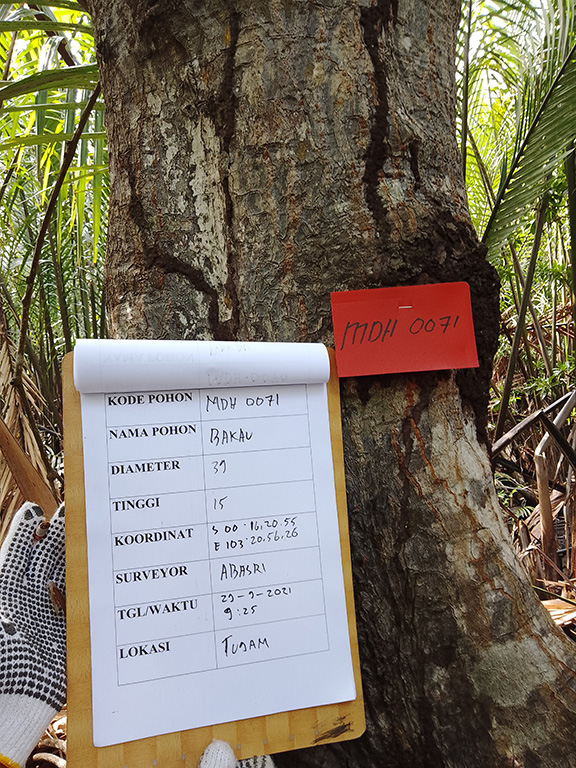 MDH 0071
KODE POHON MDH 0071
NAMA POHON BAKAU
DIAMETER 39
TINGGI 15
KOORDINAT S 00:16,20.55
E 103:20,56,26
SURVEYOR ABASRI
TGL/WAKTU 29-9-2021
9:25
LOKASI TUJAM